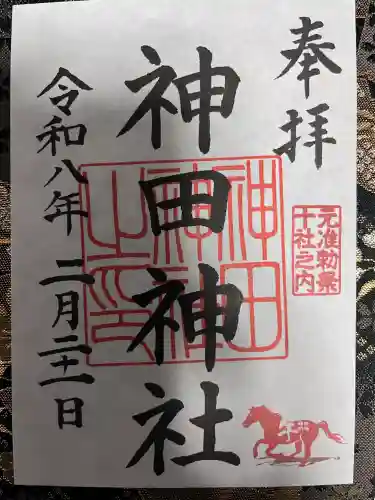 奉拝
元准勅祭
十社之内
神田神社
神田神社之印
令和八年二月二十一日